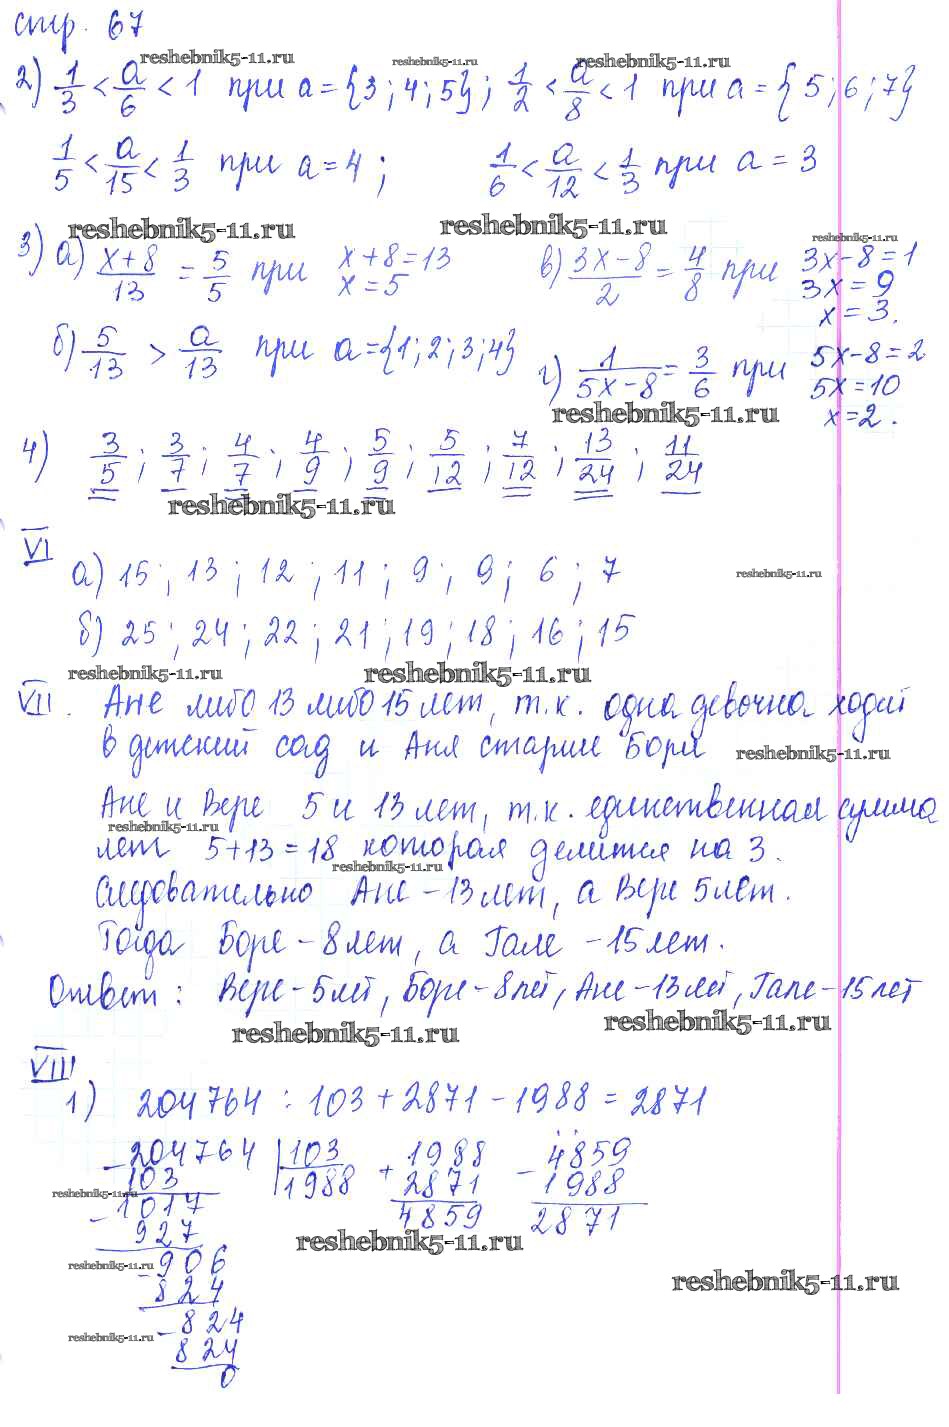 стр. 67
reshebnik5-11.ru reshebnik5-11.ru reshebnik5-11.ru
2) 1/3 < a/6 < 1 при a = {3; 4; 5}; 1/2 < a/8 < 1 при a = {5; 6; 7}
1/5 < a/15 < 1/3 при a = 4; 1/6 < a/12 < 1/3 при a = 3
reshebnik5-11.ru reshebnik5-11.ru reshebnik5-11.ru
3) а) x+8/13 = 5/5 при x+8=13 в) 3x-8/2 = 4/8 при 3x-8=1
x=5 3x=9
x=3.
б) 5/13 > a/13 при a={1; 2; 3; 4} г) 1/5x-8 = 3/6 при 5x-8=2
5x=10
reshebnik5-11.ru x=2.
4) 3/5; 3/7; 4/7; 4/9; 5/9; 5/12; 7/12; 13/24; 11/24
reshebnik5-11.ru
VI
а) 15; 13; 12; 11; 9; 9; 6; 7 reshebnik5-11.ru
б) 25; 24; 22; 21; 19; 18; 16; 15
reshebnik5-11.ru reshebnik5-11.ru
VII. Ане либо 13 либо 15 лет, т.к. одна девочка ходит
в детский сад и Аня старше Бори
reshebnik5-11.ru
Ане и Вере 5 и 13 лет, т.к. единственная сумма
reshebnik5-11.ru
лет 5+13=18 которая делится на 3.
reshebnik5-11.ru
Следовательно Ане - 13 лет, а Вере 5 лет.
Тогда Боре - 8 лет, а Гале - 15 лет.
Ответ: Вере - 5 лет, Боре - 8 лет, Ане - 13 лет, Гале - 15 лет
reshebnik5-11.ru reshebnik5-11.ru
VIII
1) 204764 : 103 + 2871 - 1988 = 2871
-204764 |103 +1988 -4859
103 1988 2871 1988
reshebnik5-11.ru
-1017 4859 2871
927
reshebnik5-11.ru
reshebnik5-11.ru
-906
824
reshebnik5-11.ru
-824
reshebnik5-11.ru
824
0